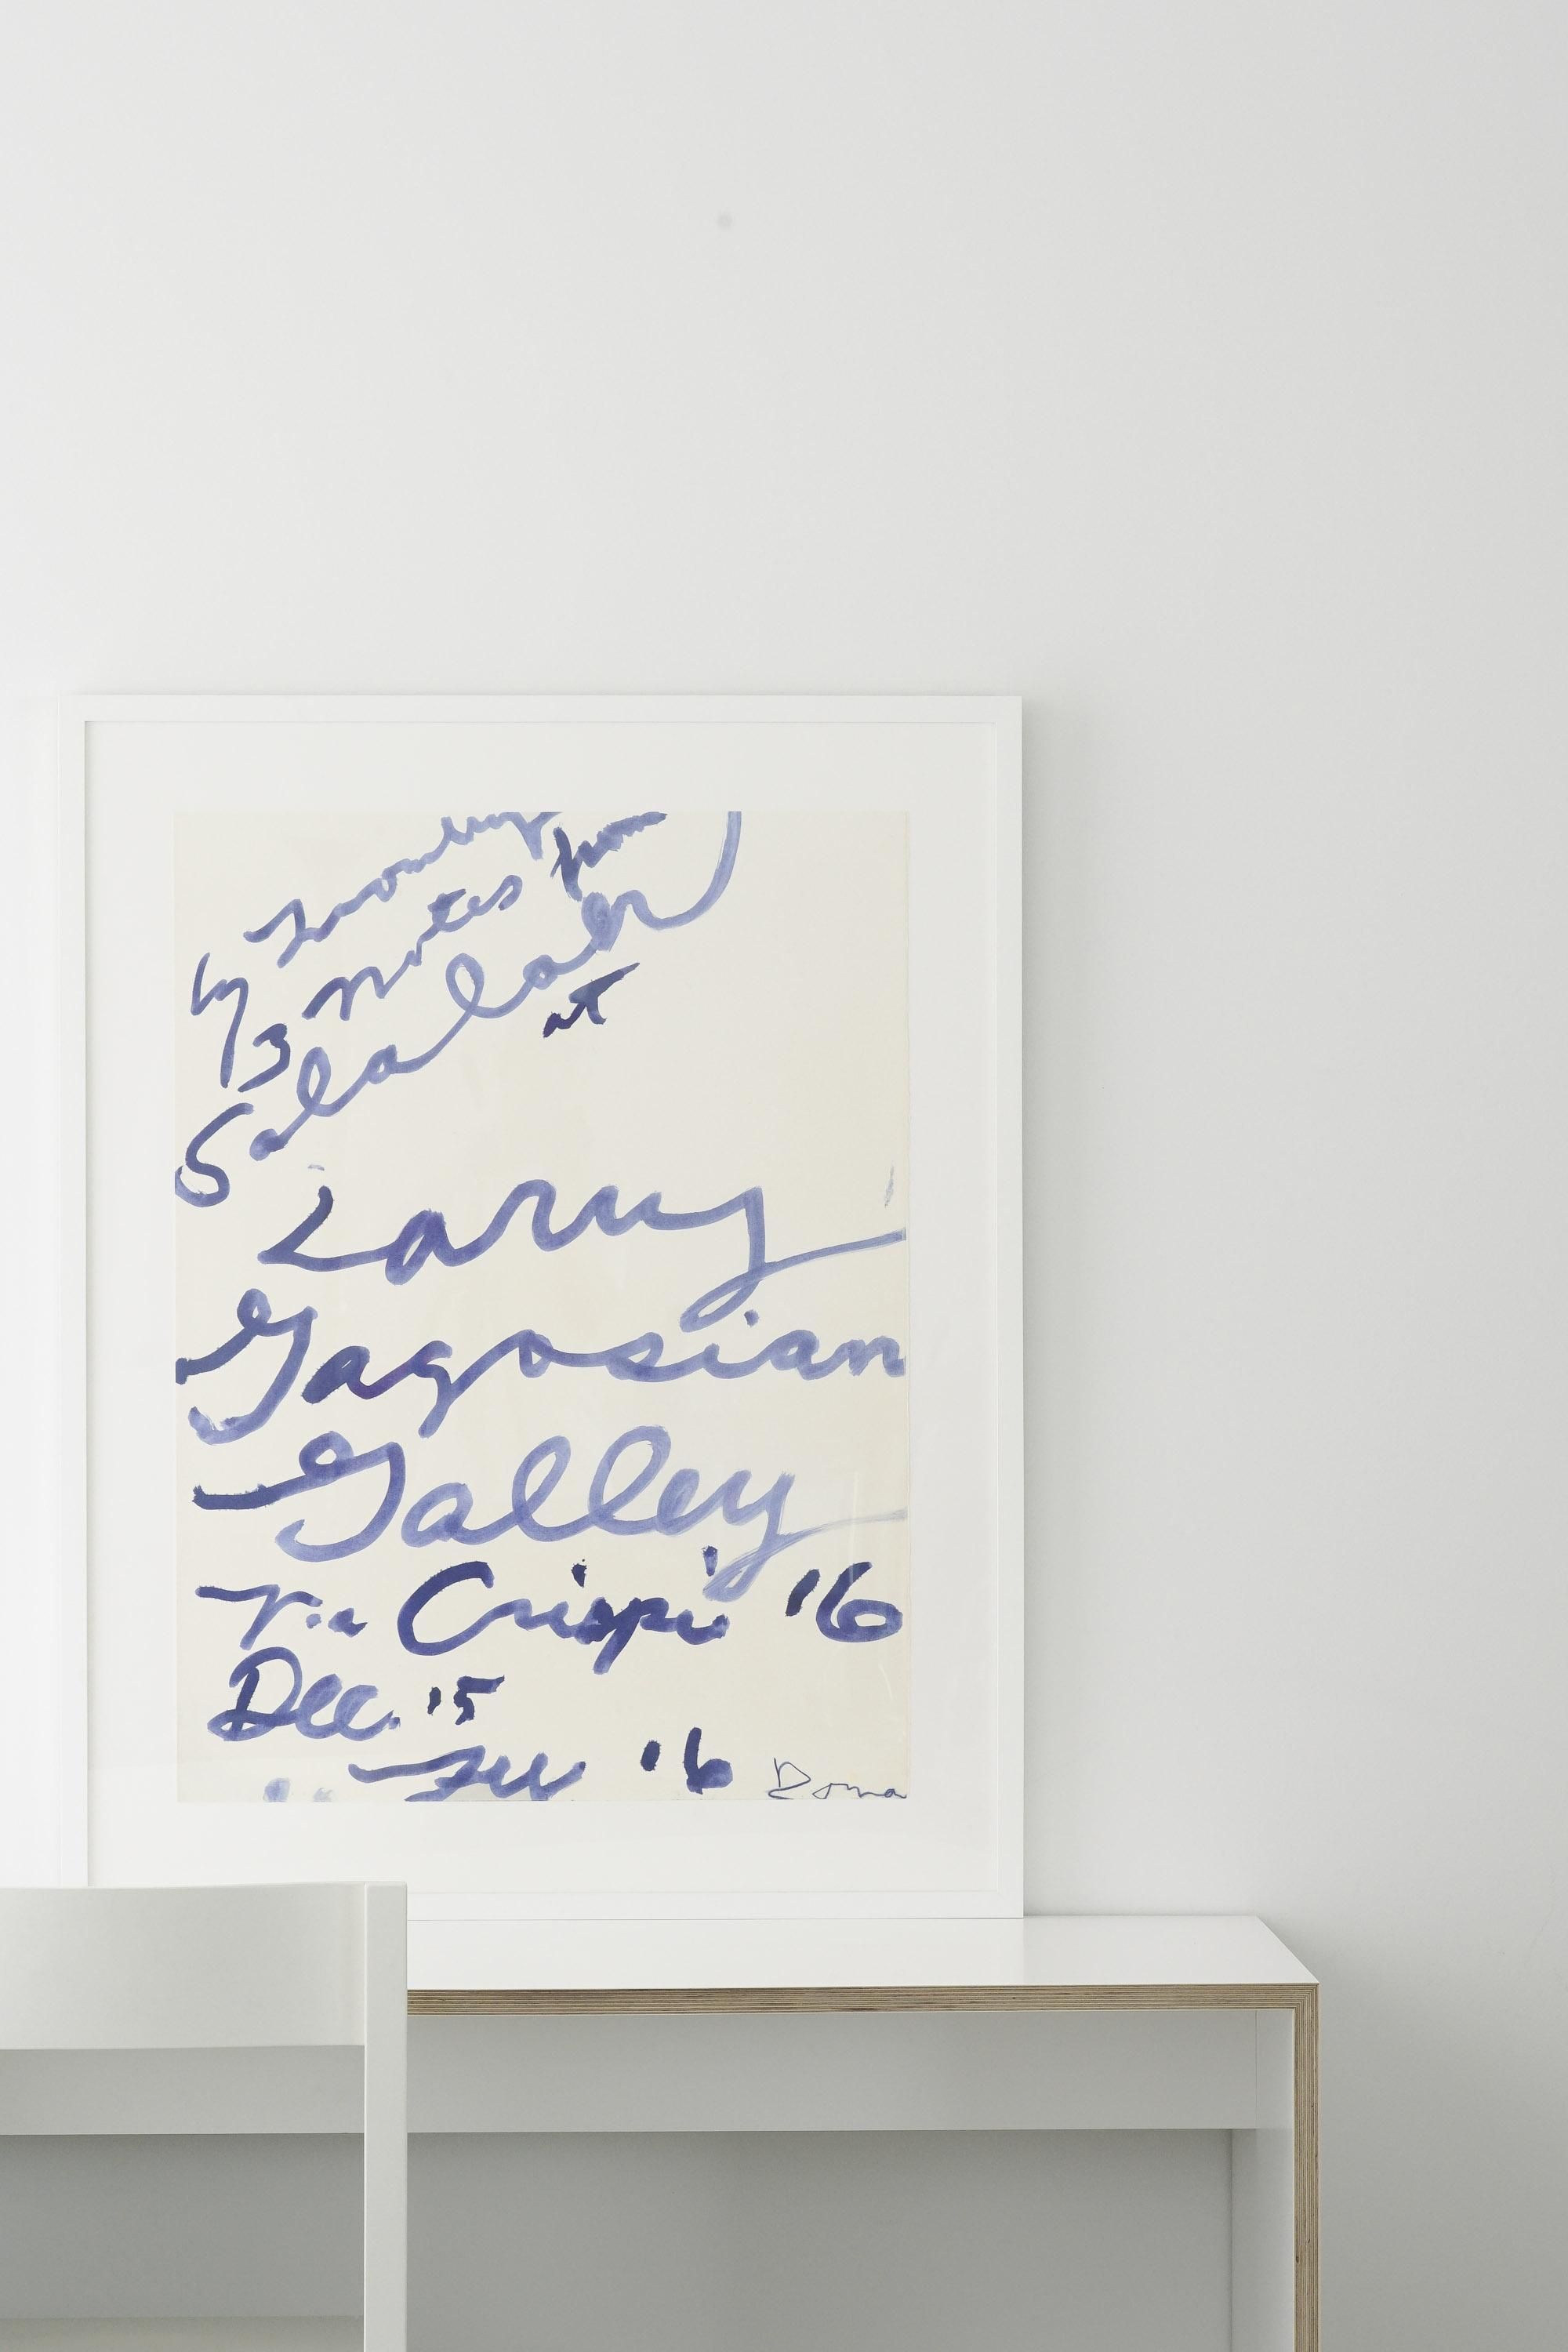 Twombly
by 3 notes from
Salalah
at
Larry
Gagosian
Gallery
Via Crispi '16
Dec. '15
'16 Roma